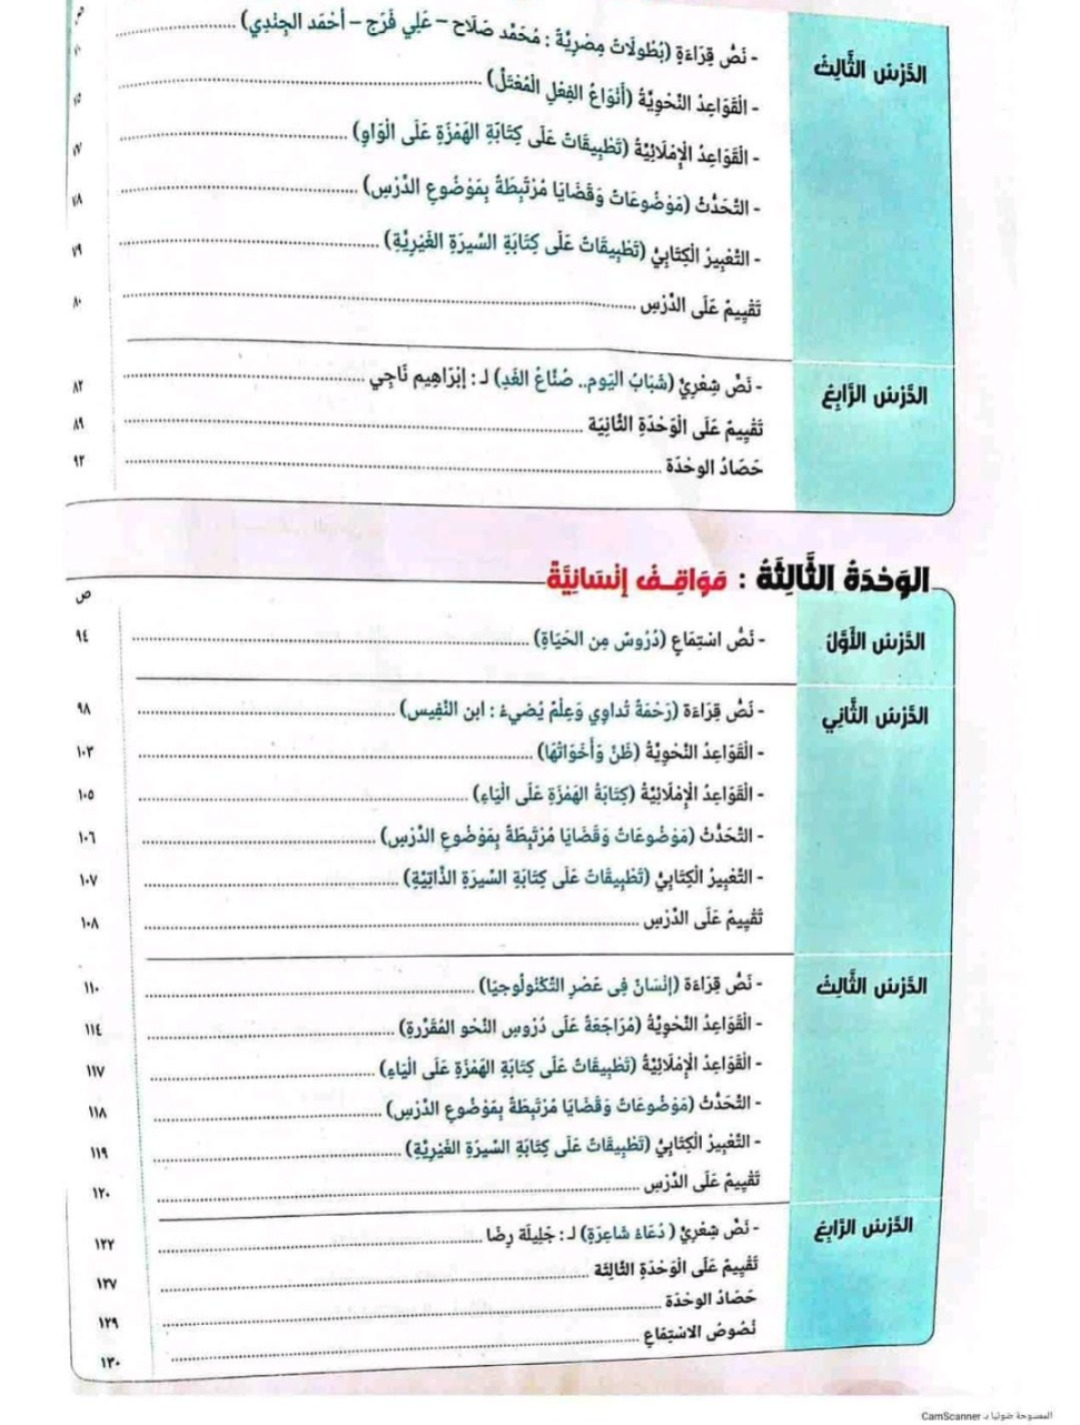 الدَّرْسُ الثَّالِثُ
- نَصُّ قِرَاءَةٍ (بُطُولَاتٌ مِصْرِيَّةٌ : مُحَمَّد صَلَاح – عَلِي فَرَج – أَحْمَد الجِنْدِي)
- الْقَوَاعِدُ النَّحْوِيَّةُ (أَنْوَاعُ الفِعْلِ الْمُعْتَلِّ) ٧٥
- الْقَوَاعِدُ الْإِمْلَائِيَّةُ (تَطْبِيقَاتٌ عَلَى كِتَابَةِ الهَمْزَةِ عَلَى الْوَاوِ) ٧٧
- التَّحَدُّثُ (مَوْضُوعَاتٌ وَقَضَايَا مُرْتَبِطَةٌ بِمَوْضُوعِ الدَّرْسِ) ٧٨
- التَّعْبِيرُ الْكِتَابِيُّ (تَطْبِيقَاتٌ عَلَى كِتَابَةِ السِّيرَةِ الغَيْرِيَّةِ) ٧٩
تَقْيِيمٌ عَلَى الدَّرْسِ ٨٠
الدَّرْسُ الرَّابِعُ
- نَصٌّ شِعْرِيٌّ (شَبَابُ اليَوم.. صُنَّاعُ الغَدِ) لـ : إِبْرَاهِيم نَاجِي ٨٢
تَقْيِيمٌ عَلَى الْوَحْدَةِ الثَّانِيَة ٨٩
حَصَادُ الوحْدَة ٩٢
الوَحْدَةُ الثَّالِثَةُ : مَوَاقِفُ إِنْسَانِيَّةٌ
ص
الدَّرْسُ الأَوَّلُ
- نَصُّ اسْتِمَاعٍ (دُرُوسٌ مِن الحَيَاةِ) ٩٤
الدَّرْسُ الثَّانِي
- نَصُّ قِرَاءَة (رَحْمَةٌ تُداوِي وَعِلْمٌ يُضيءُ : ابن النَّفِيس) ٩٨
- الْقَوَاعِدُ النَّحْوِيَّةُ (ظَنَّ وَأَخَوَاتُهَا) ١٠٣
- الْقَوَاعِدُ الْإِمْلَائِيَّةُ (كِتَابَةُ الهَمْزَةِ عَلَى الْيَاءِ) ١٠٥
- التَّحَدُّثُ (مَوْضُوعَاتٌ وَقَضَايَا مُرْتَبِطَةٌ بِمَوْضُوعِ الدَّرْسِ) ١٠٦
- التَّعْبِيرُ الْكِتَابِيُّ (تَطْبِيقَاتٌ عَلَى كِتَابَةِ السِّيرَةِ الذَّاتِيَّةِ) ١٠٧
تَقْيِيمٌ عَلَى الدَّرْسِ ١٠٨
الدَّرْسُ الثَّالِثُ
- نَصُّ قِرَاءَة (إِنْسَانٌ فِى عَصْرِ التِّكْنُولُوجيَا) ١١٠
- الْقَوَاعِدُ النَّحْوِيَّةُ (مُرَاجَعَةٌ عَلَى دُرُوسِ النَّحْو المُقَرَّرةِ) ١١٤
- الْقَوَاعِدُ الْإِمْلَائِيَّةُ (تَطْبِيقَاتٌ عَلَى كِتَابَةِ الهَمْزَةِ عَلَى الْيَاءِ) ١١٧
- التَّحَدُّثُ (مَوْضُوعَاتٌ وَقَضَايَا مُرْتَبِطَةٌ بِمَوْضُوعِ الدَّرْسِ) ١١٨
- التَّعْبِيرُ الْكِتَابِيُّ (تَطْبِيقَاتٌ عَلَى كِتَابَةِ السِّيرَةِ الغَيْرِيَّةِ) ١١٩
تَقْيِيمٌ عَلَى الدَّرْسِ ١٢٠
الدَّرْسُ الرَّابِعُ
- نَصٌّ شِعْرِيٌّ (دُعَاءُ شَاعِرَةٍ) لـ : جَلِيلَة رِضَا ١٢٢
تَقْيِيمٌ عَلَى الْوَحْدَةِ الثَّالِثَة ١٢٧
حَصَادُ الوحْدَة ١٢٩
نُصُوصُ الاسْتِمَاعِ ١٣٠
الممسوحة ضوئيا بـ CamScanner